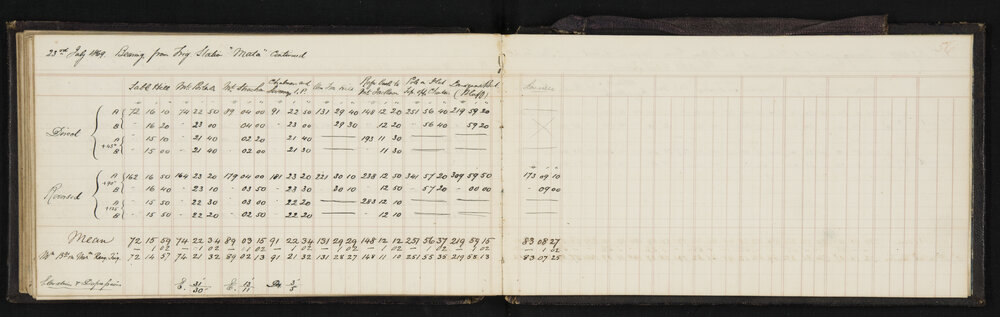 23rd July 1869. Bearing from Trig Station "Mata" Continued
Table Hill Mt Mt Chalmers Survey T.P. Hill to Mt on Flat Bluff
° ' " ° ' " ° ' " ° ' " ° ' " ° ' " ° ' " ° ' "
Direct A 72 16 10 74 22 50 89 04 00 91 22 50 131 29 40 148 12 20 251 56 40 219 59 20
B - 16 20 - 23 00 - 04 00 - 23 00 29 30 12 20 - 56 40 59 20
+45° A - 15 10 - 21 40 - 02 20 - 21 40 193 11 30
B - 15 00 - 21 40 - 02 00 - 21 30 - 11 30
Reversed A 162 16 50 164 23 20 179 04 00 181 23 20 221 30 10 238 12 50 341 57 20 309 59 50 173 09 10
+90° B - 16 40 - 23 10 - 03 50 - 23 30 30 10 12 50 - 57 20 - 00 00 - 09 00
+135 A - 15 50 - 22 30 - 03 00 22 20 283 12 10
B - 15 50 - 22 20 - 02 50 - 22 20 - 12 10
Mean 72 15 59 74 22 34 89 03 15 91 22 34 131 29 29 148 12 12 251 56 37 219 59 15 83 08 27
- 1 02 - 1 02 - 1 02 - 1 02 - 1 02 - 1 02 - 1 02 - 1 02 - 1 02
72 14 57 74 21 32 89 02 13 91 21 32 131 28 27 148 11 10 251 55 35 219 58 13 83 07 25
Elevation & Depression E. 31/30 E. 13/11 De 3/5